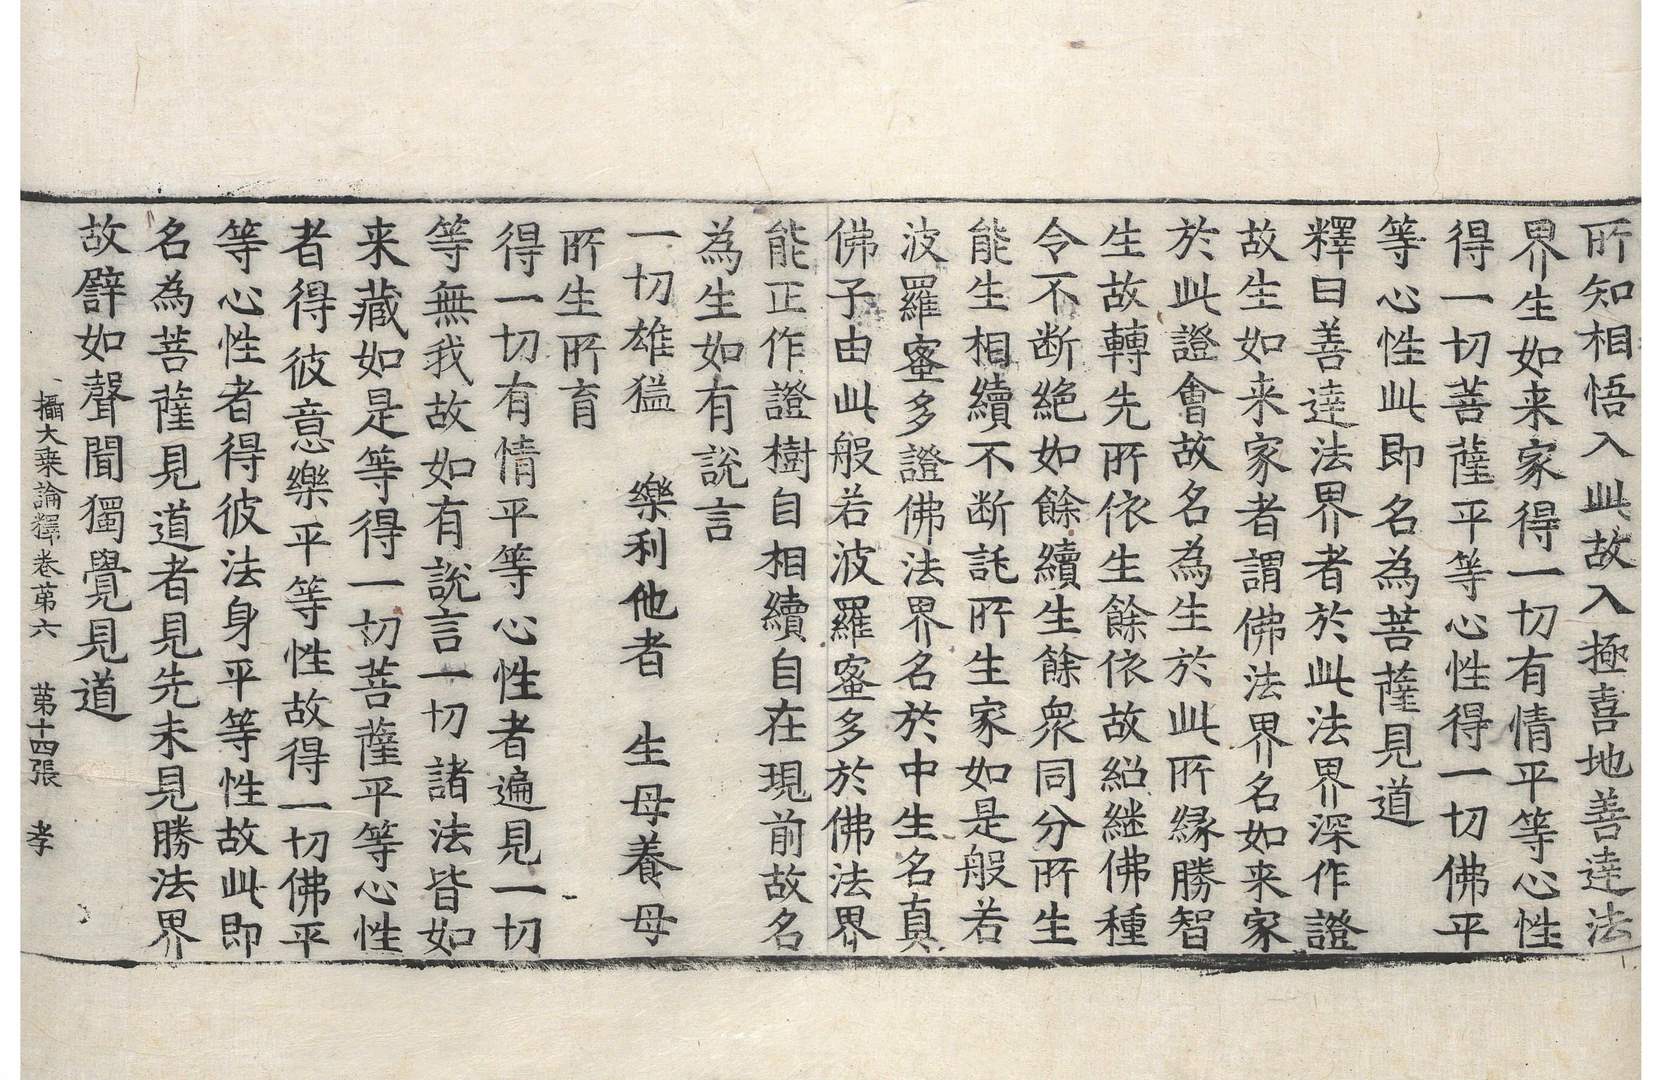 所知相悟入此故入極喜地善達法
界生如来家得一切有情平等心性
得一切菩薩平等心性得一切佛平
等心性此即名為菩薩見道
釋曰善達法界者於此法界深作證
故生如来家者謂佛法界名如来家
於此證會故名為生於此所緣勝智
生故轉先所依生餘依故紹継佛種
令不断絶如餘續生餘衆同分所生
能生相續不断託所生家如是般若
波羅蜜多證佛法界名於中生名真
佛子由此般若波羅蜜多於佛法界
能正作證樹自相續自在現前故名
為生如有說言
一切雄猛　樂利他者　生母養母
所生所育
得一切有情平等心性者遍見一切
等無我故如有說言一切諸法皆如
来藏如是等得一切菩薩平等心性
者得彼意樂平等性故得一切佛平
等心性者得彼法身平等性故此即
名為菩薩見道者見先未見勝法界
故譬如聲聞獨覺見道
攝大乗論釋卷第六　第十四張　孝